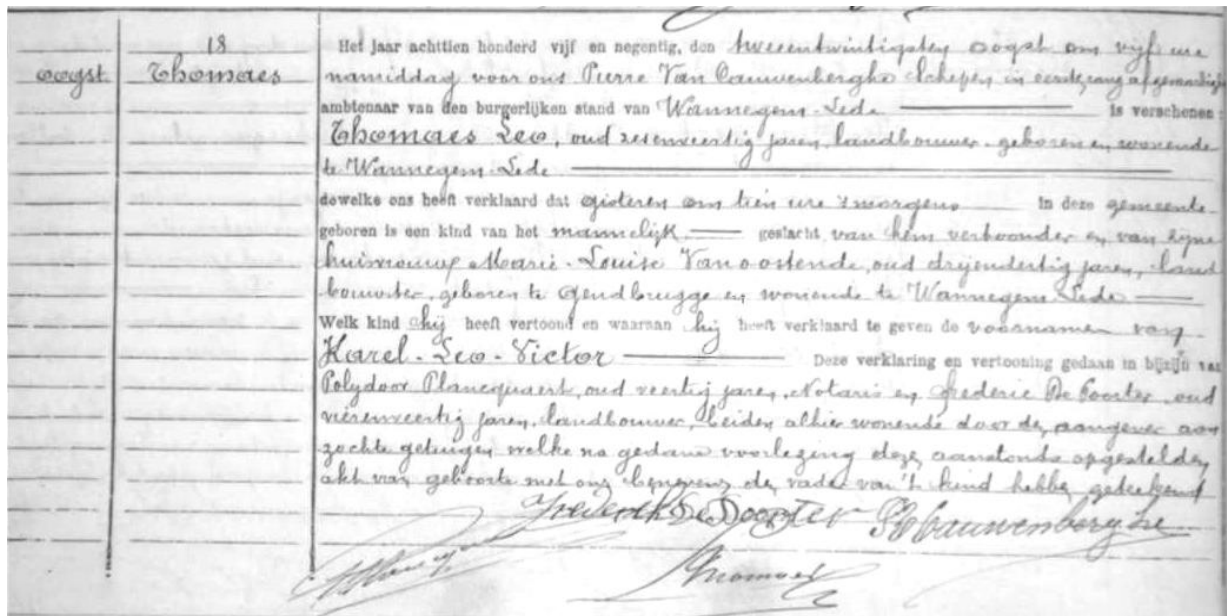 18
oogst
Thomaes
Het jaar achttien honderd vijf en negentig, den tweeentwintigsten oogst om vijf ure
namiddag voor ons Pierre Van Cauwenberghe Schepen, in eersten rang afgevaardigde
ambtenaar van den burgerlijken stand van Wannegem-Lede is verschenen:
Thomaes Leo, oud zesenveertig jaren, landbouwer, geboren en wonende
te Wannegem-Lede
dewelke ons heeft verklaard dat gisteren om tien ure 'smorgens in deze gemeente
geboren is een kind van het mannelijk geslacht van hem vertoonder en van zijne
huisvrouw Marie-Louise Vanoostende, oud drijendertig jaren, land
bouwster, geboren te Gendbrugge en wonende te Wannegem-Lede
Welk kind hij heeft vertoond en waaraan hij heeft verklaard te geven de voornamen van
Karel-Leo-Victor Deze verklaring en vertooning gedaan in bijzijn van
Polydoor Plancquaert, oud veertig jaren, Notaris en Frederic De Poorter, oud
vierenveertig jaren, landbouwer, beiden alhier wonende door den aangever aan
zochte getuigen welke na gedane voorlezing dezer aanstonds opgestelden
akt van geboorte met ons benevens den vader van 't kind hebben geteekend
Frederik De Poorter PVCauwenberghe
Thomaes